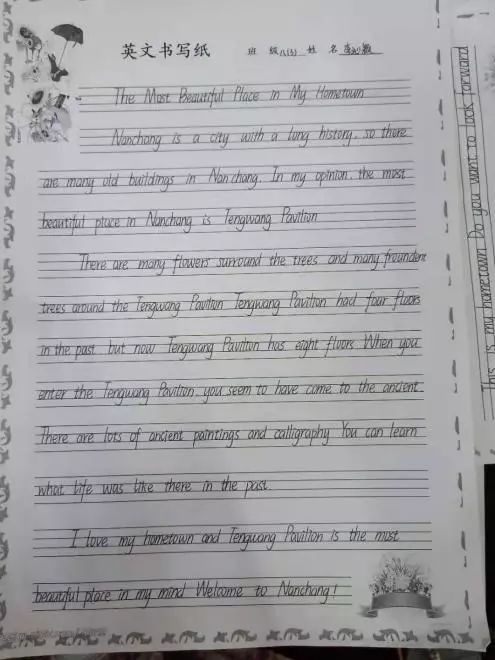 英文书写纸 班 级 八(5) 姓 名
The Most Beautiful Place in My Hometown
Nanchang is a city with a long history, so there
are many old buildings in Nanchang. In my opinion, the most
beautiful place in Nanchang is Tengwang Pavilion
There are many flowers surround the trees and many
trees around the Tengwang Pavilion Tengwang Pavilion had four floors
in the past but now Tengwang Pavilion has eight floors. When you
enter the Tengwang Pavilion, you seem to have come to the ancient.
There are lots of ancient paintings and calligraphy You can learn
what life was like there in the past.
I love my hometown and Tengwang Pavilion is the most
beautiful place in my mind Welcome to Nanchang!
This is my hometown. Do you want to look forward